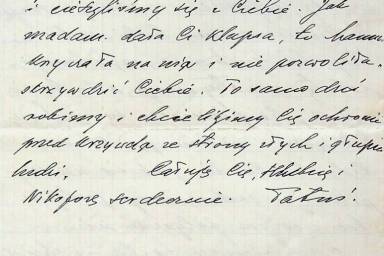 i cieszyliśmy się z Ciebie. Jak
madam dała Ci klapsa, to mama
krzyczała na nią i nie pozwoliła
skrzywdzić Ciebie. To samo dziś
robimy i chcielibyśmy Cię ochronić
przed krzywdą ze strony złych i głupich
ludzi. Całuję Cię, i
Nikoforę serdecznie. Tatuś.